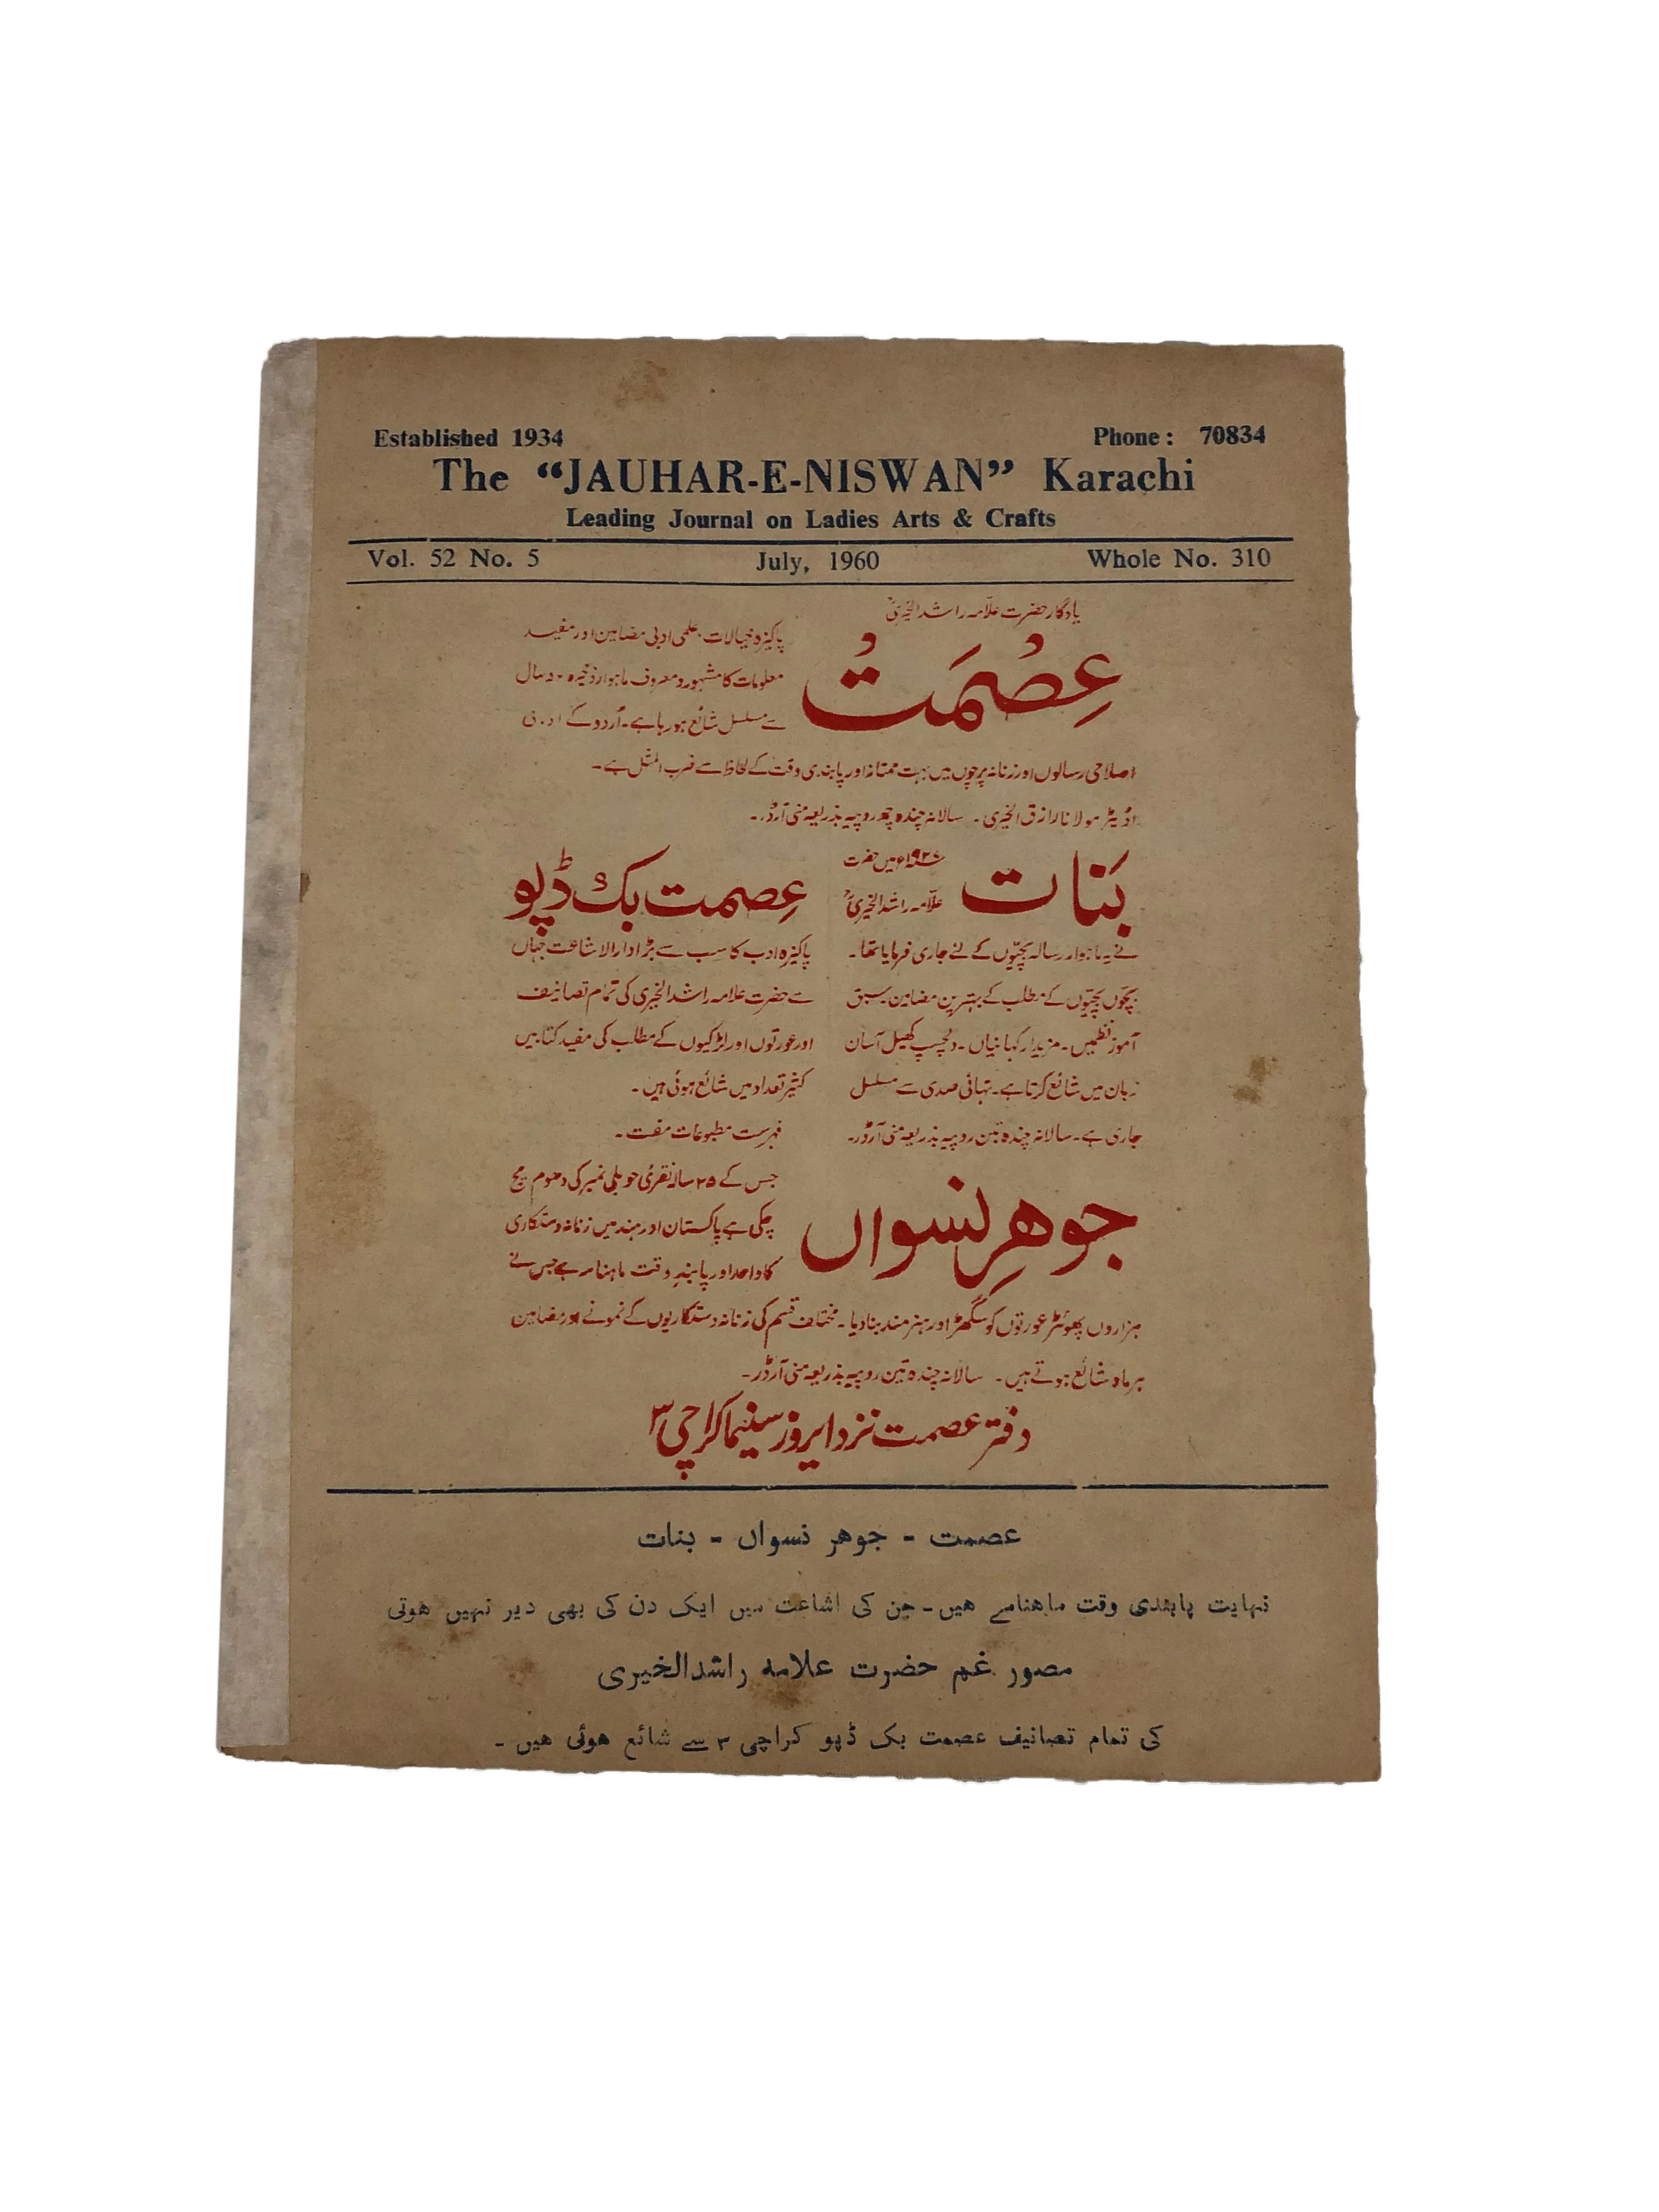 Established 1934 Phone: 70834
The “JAUHAR-E-NISWAN” Karachi
Leading Journal on Ladies Arts & Crafts
Vol. 52 No. 5 July, 1960 Whole No. 310
یادگار حضرت علّامہ راشد الخیریؒ
عِصْمَتْ
پاکیزہ خیالات، علمی ادبی مضامین اور مفید
معلومات کا مشہور و معروف ماہوار ذخیرہ سال
سے مسلسل شائع ہو رہا ہے۔ اُردو کے ادبی
اصلاحی رسالوں اور زنانہ پرچوں میں بہت ممتاز اور پابندی وقت کے لحاظ سے ضرب المثل ہے۔
اڈیٹر مولانا رازق الخیری۔ سالانہ چندہ چھ روپیہ بذریعہ منی آرڈر۔
بَنات
۱۹۲۷ء میں حضرت
علّامہ راشد الخیریؒ
نے یہ ماہوار رسالہ بچیّوں کے لئے جاری فرمایا تھا۔
بچّوں بچیّوں کے مطلب کے بہترین مضامین سبق
آموز نظمیں۔ مزیدار کہانیاں۔ دلچسپ کھیل آسان
زبان میں شائع کرتا ہے۔ تہائی صدی سے مسلسل
جاری ہے۔ سالانہ چندہ تین روپیہ بذریعہ منی آرڈر۔
عصمت بک ڈپو
پاکیزہ ادب کا سب سے بڑا دارالاشاعت جہاں
سے حضرت علامہ راشد الخیری کی تمام تصانیف
اور عورتوں اور لڑکیوں کے مطلب کی مفید کتابیں
کثیر تعداد میں شائع ہوئی ہیں۔
فہرست مطبوعات مفت۔
جوہرِ نسواں
جس کے ۲۵ سالہ نقرئی جوبلی نمبر کی دھوم مچ
چکی ہے پاکستان اور ہند میں زنانہ دستکاری
کا واحد اور پابندِ وقت ماہنامہ ہے جس نے
ہزاروں پھوہڑ عورتوں کو سگھڑ اور ہنرمند بنا دیا۔ مختلف قسم کی زنانہ دستکاریوں کے نمونے اور مضامین
ہر ماہ شائع ہوتے ہیں۔ سالانہ چندہ تین روپیہ بذریعہ منی آرڈر۔
دفتر عصمت نزد ایروز سینما کراچی ۳
عصمت - جوهر نسواں - بنات
نہایت پابندی وقت ماہنامے ہیں۔ جن کی اشاعت میں ایک دن کی بھی دیر نہیں ہوتی
مصور غم حضرت علامہ راشدالخیری
کی تمام تصانیف عصمت بک ڈپو کراچی ۳ سے شائع ہوئی ہیں۔